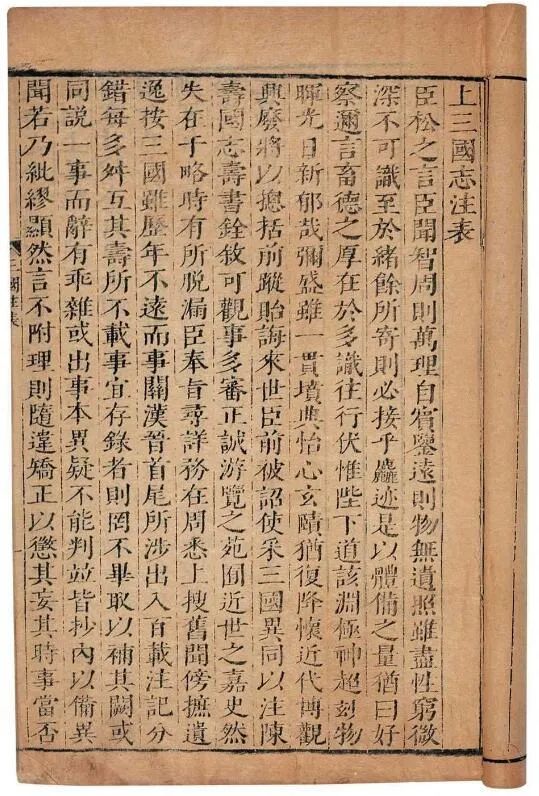 上三國志注表
臣松之言臣聞智周則萬理自賓鑒遠則物無遺照雖盡性窮微
深不可識至於緒餘所寄則必接乎麤迹是以體備之量猶曰好
察邇言畜德之厚在於多識往行伏惟陛下道該淵極神超玅物
暉光日新郁哉彌盛雖一貫墳典怡心玄賾猶復降懷近代博觀
興廢將以摠括前蹤貽誨來世臣前被詔使采三國異同以注陳
壽國志壽書銓敘可觀事多審正誠游覽之苑囿近世之嘉史然
失在于略時有所脫漏臣奉旨尋詳務在周悉上搜舊聞傍摭遺
逸按三國雖歷年不遠而事關漢晉首尾所涉出入百載注記分
錯每多舛互其壽所不載事宜存錄者則罔不畢取以補其闕或
同說一事而辭有乖雜或出事本異疑不能判並皆抄內以備異
聞若乃紕繆顯然言不附理則隨違矯正以懲其妄其時事當否
國注表